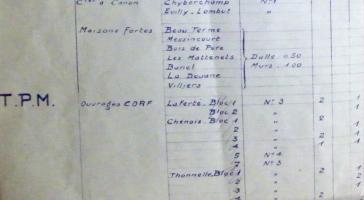 Clef à Canon Chyberchamp N°1
Euilly-Lombut "
Maisons Fortes Beau Terme
Messincourt
Bois de Pure
Les Mattenets Dalle 0.50
Buriel Murs 1.00
La Douane
Villiers
T.P.M. Ouvrages CORF Laferté Bloc 1 N° 3 2 1
Bloc 2 " 2
Chenois Bloc 1 " 2 1
2 " 1
3 " 1 1
4 " 1
5 N° 4
7 N° 3 1
Thonnelle Bloc 1 " 2 1
2 "
3 " 2
4 " 2 1